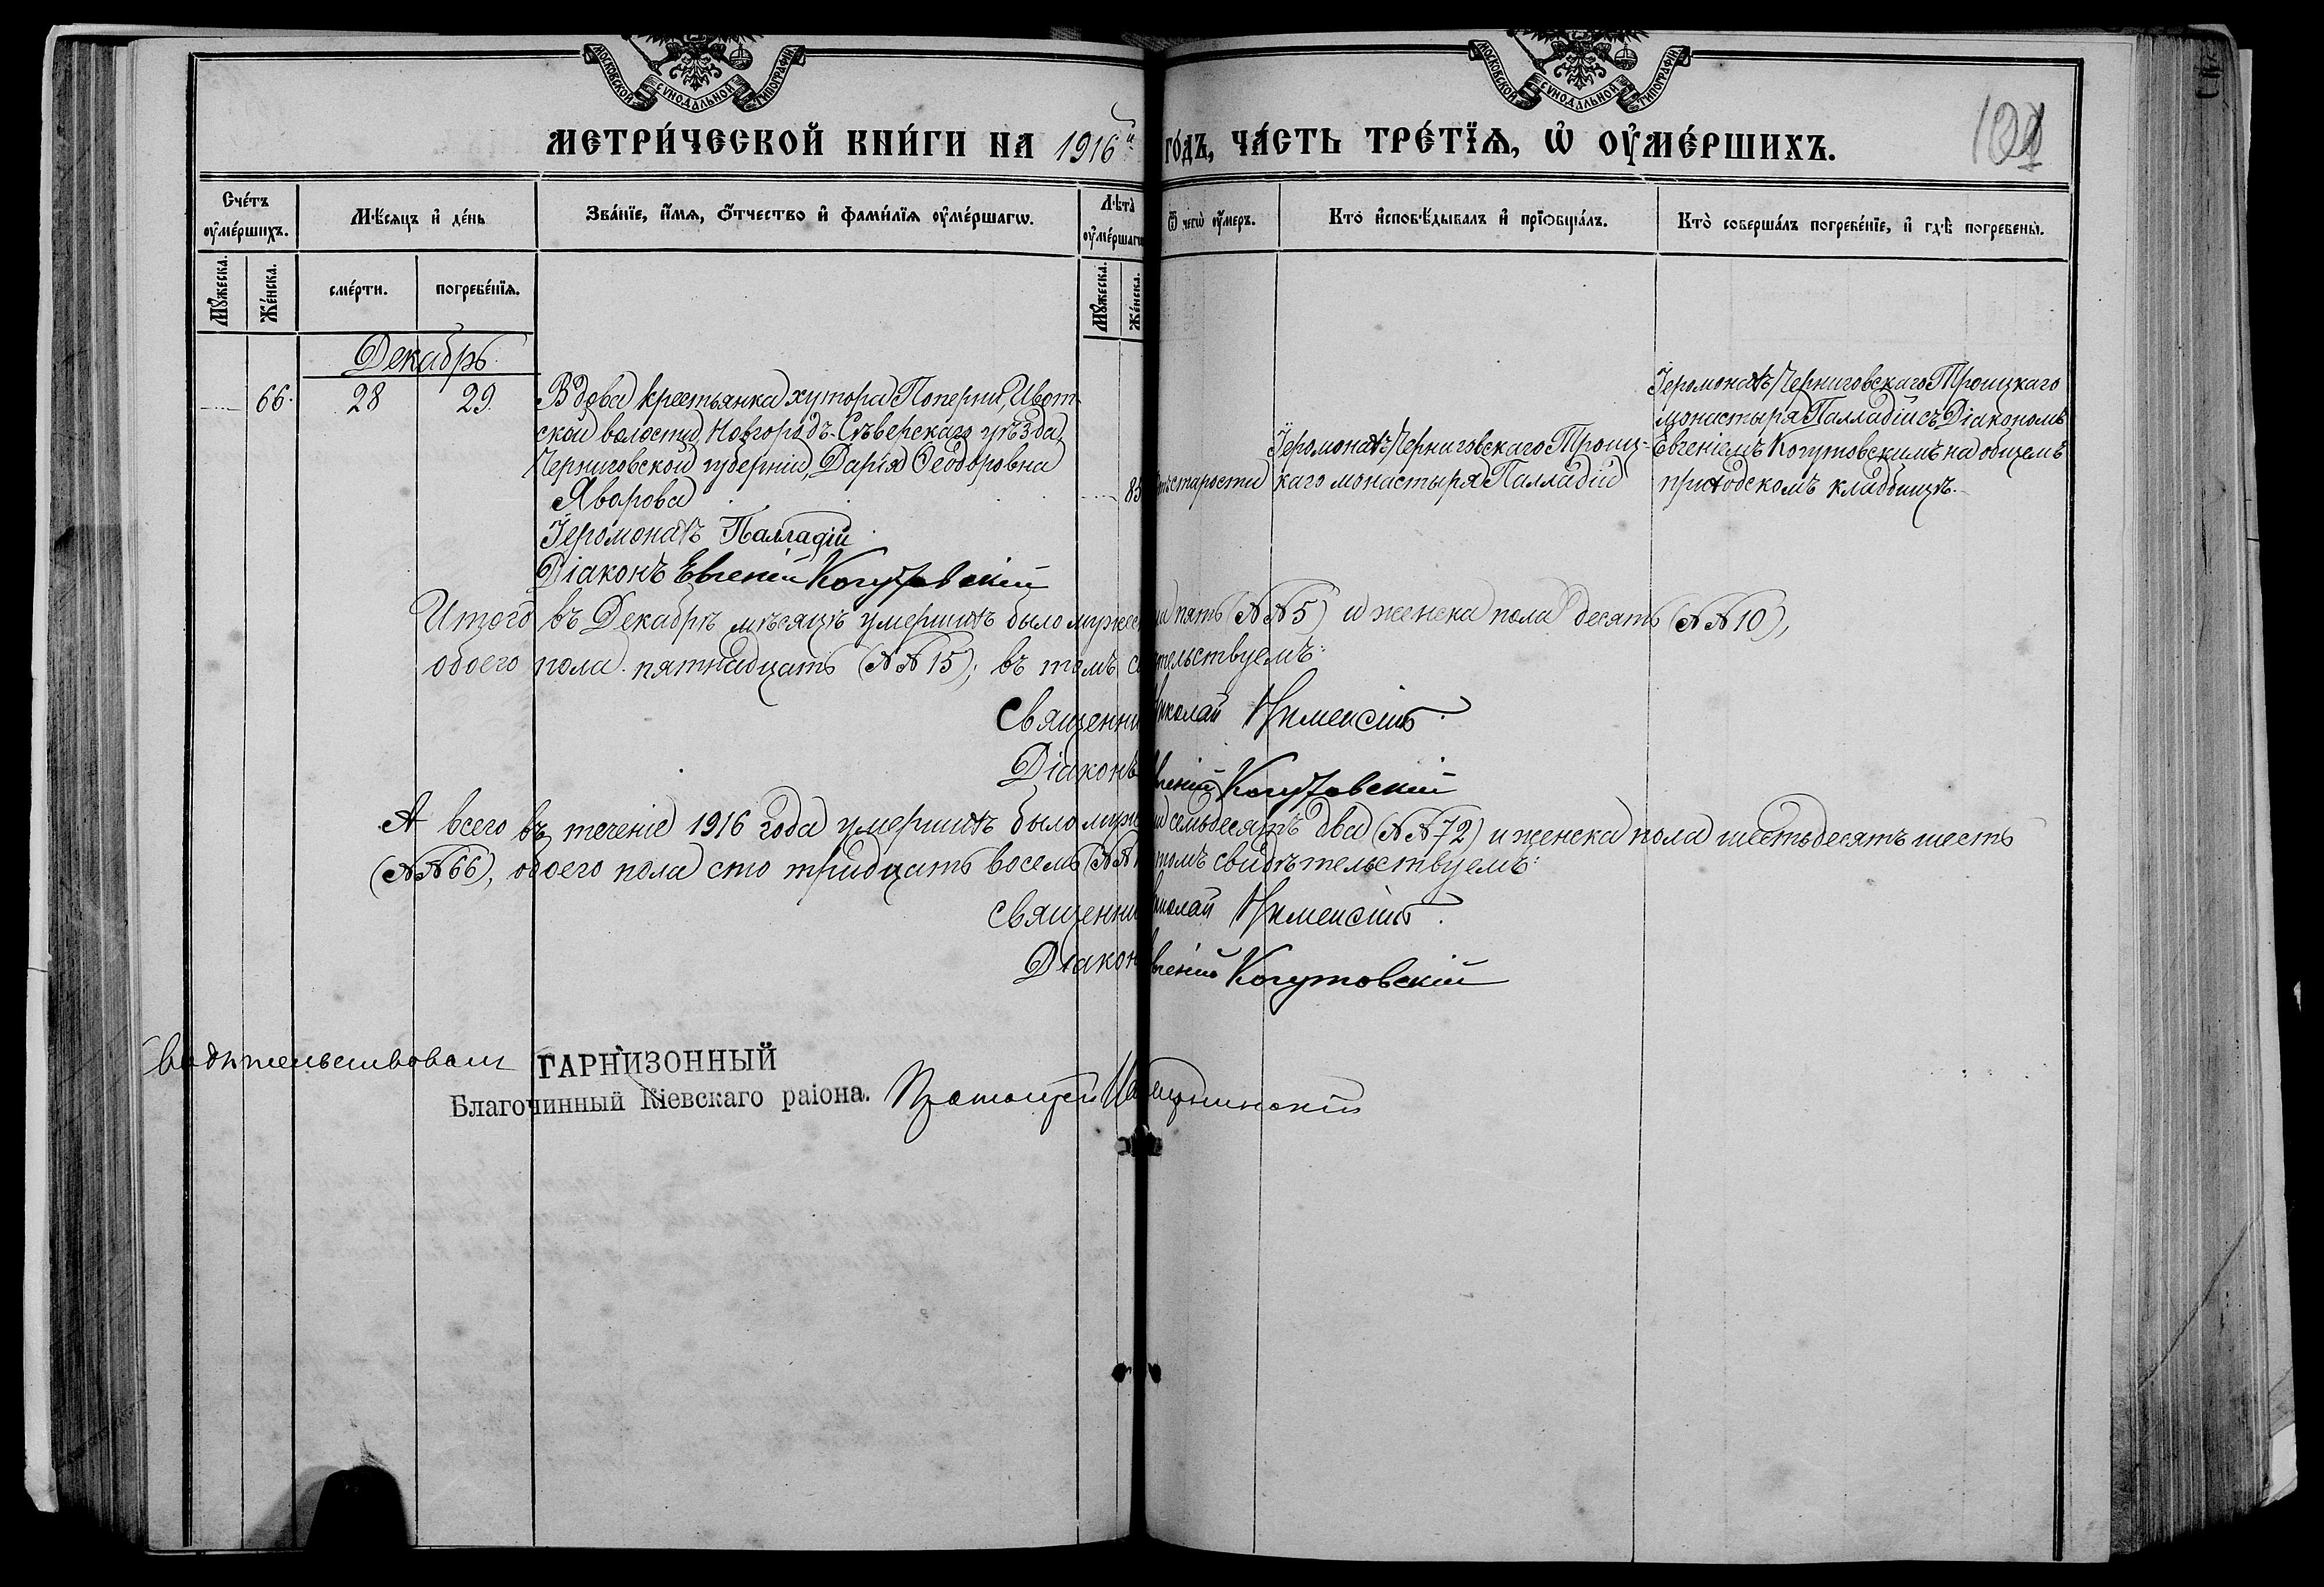 МОСКОВСКОЙ СѴНОДАЛЬНОЙ ТИПОГРАФІИ
МОСКОВСКОЙ СѴНОДАЛЬНОЙ ТИПОГРАФІИ
МЕТРИ́ЧЕСКОЙ КНИ́ГИ НА 1916й ГО́ДЪ, ЧА́СТЬ ТРЕ́ТЇѦ, Ѡ҆ ОУ҆МЕ́РШИХЪ.
Сче́тъ оу҆ме́ршихъ.
Мѣ́сяцъ и҆ де́нь
Зва́нїе, и҆́мя, ѻ҆́тчество и҆ фами́лїя оу҆ме́ршагѡ.
Лѣта̀ оу҆ме́ршагѡ
Ѿ чегѡ̀ оу҆́меръ.
Кто̀ и҆сповѣ́дывалъ и҆ прїѡбща́лъ.
Кто̀ соверша́лъ погребе́нїе, и҆ гдѣ̀ погребены̀.
Мꙋ́жеска.
Же́нска.
сме́рти.
погребе́нїя.
Мꙋ́жеска.
Же́нска.
Декабрь.
66. 28 29. Вдова крестьянка хутора Поперни, Ивот-
ской волости, Новгородъ-Сѣверскаго уѣзда,
Черниговской губерніи, Дарія Ѳеодоровна
Яворова 85
Отъ старости
Іеромонахъ Черниговскаго Троиц-
каго монастыря Палладій
Іеромонахъ Черниговскаго Троицкаго
монастыря Палладій съ Діакономъ
Евгеніемъ Когутовскимъ на общемъ
приходскомъ кладбищѣ.
Іеромонахъ Палладій
Діаконъ Евгеній Когутовскій
Итого въ Декабрѣ мѣсяцѣ умершихъ было мужеска пять (№№ 5) и женска пола десять (№№ 10),
обоего пола пятнадцать (№№ 15); въ томъ свидѣтельствуемъ:
Священникъ Николай
Діаконъ Евгеній Когутовскій
А всего въ теченіе 1916 года умершихъ было мужеска семьдесятъ два (№№ 72) и женска пола шестьдесятъ шесть
(№№ 66), обоего пола сто тридцать восемь (№№ томъ свидѣтельствуемъ:
Священникъ Николай
Діаконъ Евгеній Когутовскій
видѣтельствовалъ ГАРНИЗОННЫЙ
Благочинный Кіевскаго раіона. Протоіерей